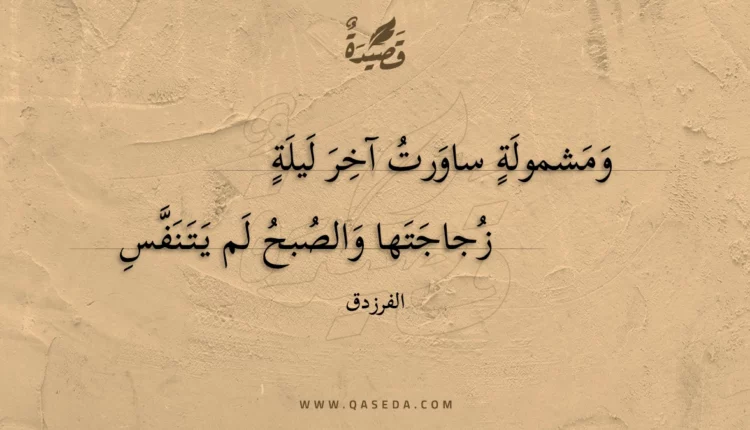 قَصِيْدَةٌ
وَمَشمولَةٍ ساوَرتُ آخِرَ لَيلَةٍ
زُجاجَتَها وَالصُبحُ لَم يَتَنَفَّسِ
الفرزدق
WWW.QASEDA.COM